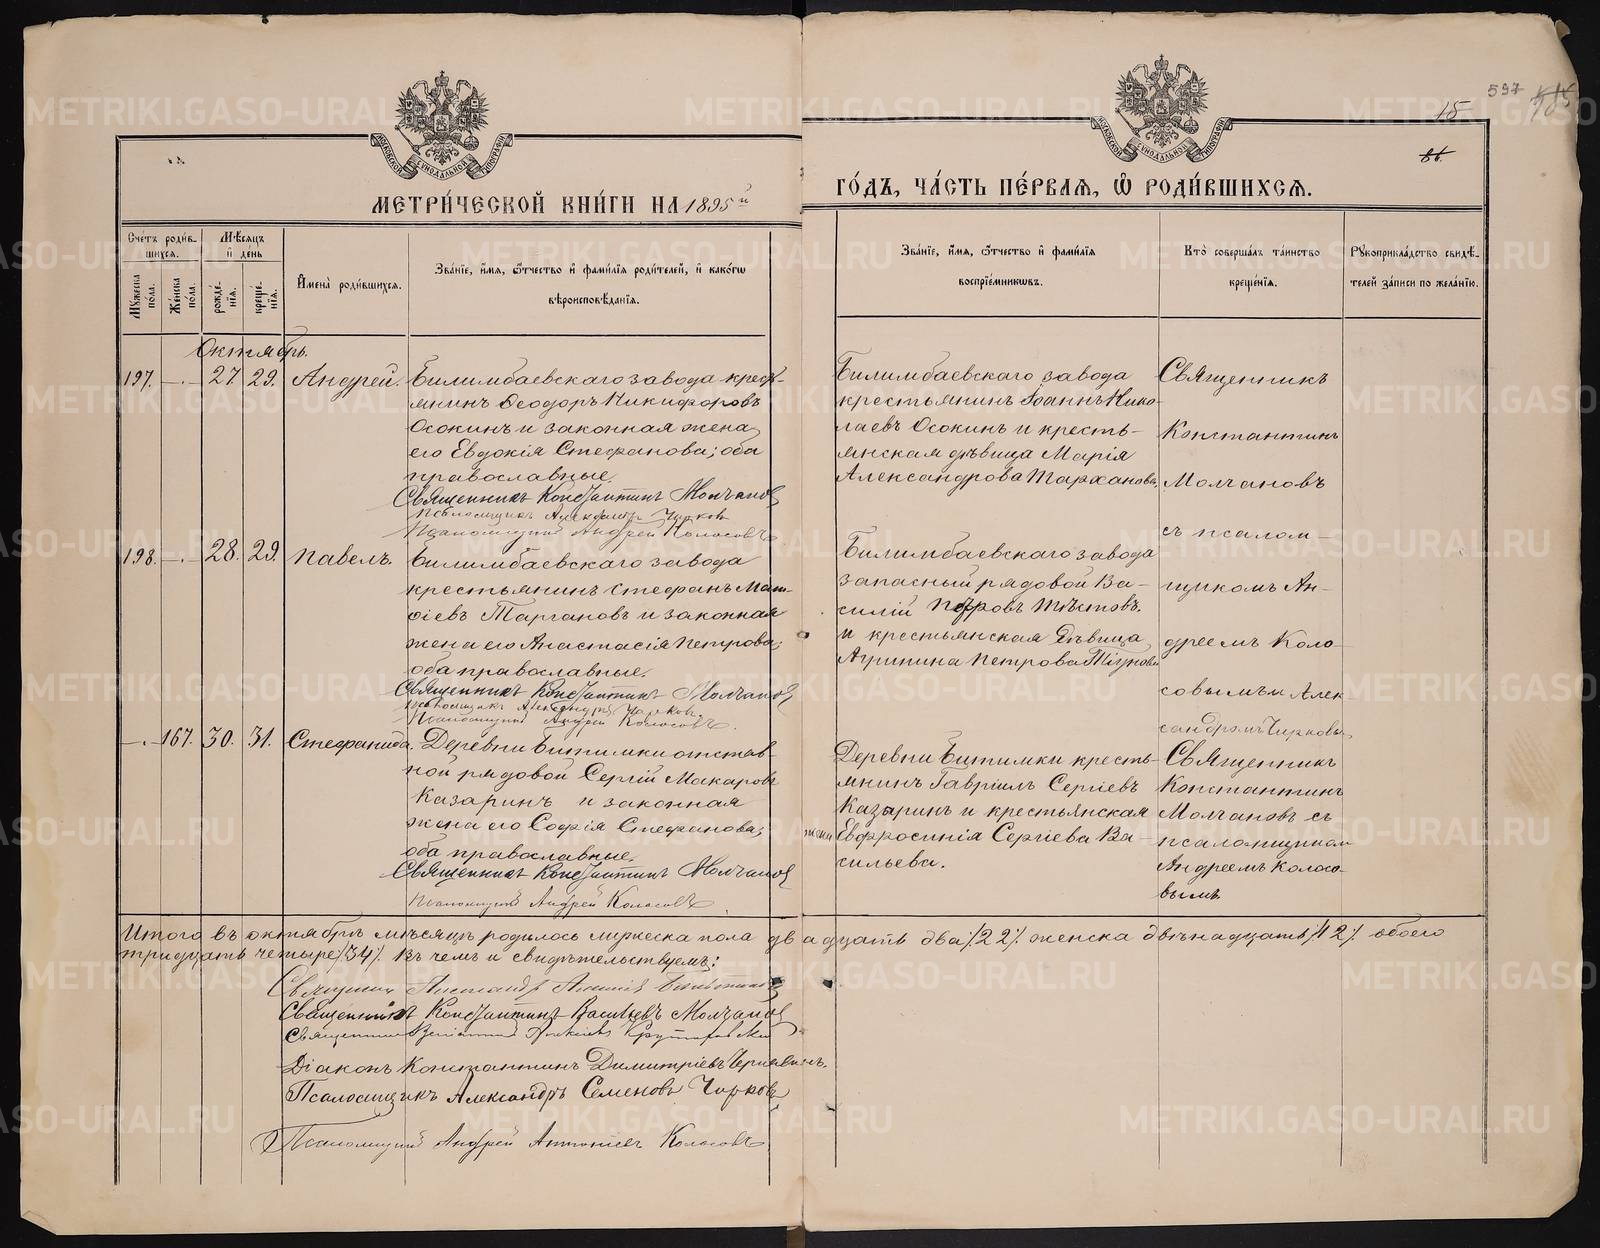 597 585
15
86.
МЕТРИ́ЧЕСКОЙ КНИ́ГИ НА 1895й
ГО́ДЪ, ЧА́СТЬ ПЕ́РВАЯ, Ѡ РОДИ́ВШИХСЯ.
Сче́тъ роди́в-
шихся.
Мѣсяцъ
и день
Му́жеска
пола.
Же́нска
по́ла.
рожде́-
нія.
креще́-
нія.
Имена̀ роди́вшихся.
Зва́ніе, имя, ѻтчество и фами́лія роди́телей, и како́гѡ
вѣроисповѣданія.
Зва́ніе, имя, ѻтчество и фами́лія
воспріе́мниковъ.
Кто̀ соверша́лъ та́инство
креще́нія.
Рукоприкла́дство свидѣ-
телей за́писи по жела́нію.
Октябрь.
197. —.— 27. 29. Андрей.
Билимбаевскаго завода кресть-
янинъ Ѳеодоръ Никифоровъ
Осокинъ и законная жена
его Евдокія Стефанова; оба
православные.
Священникъ Константинъ Молчановъ
Псаломщикъ Александръ Чирковъ
Псаломщикъ Андрей Колосовъ
Билимбаевскаго завода
крестьянинъ Іоаннъ Нико-
лаевъ Осокинъ и кресть-
янская дѣвица Марія
Александрова Тарханова.
Священникъ
Константинъ
Молчановъ
съ псалом-
198. —.— 28. 29. Павелъ.
Билимбаевскаго завода
крестьянинъ Стефанъ Мат-
ѳіевъ Таргановъ и законная
жена его Анастасія Петрова;
оба православные.
Священникъ Константинъ Молчановъ
Псаломщикъ Александръ Чирковъ
Псаломщикъ Андрей Колосовъ.
Билимбаевскаго завода
запасный рядовой Ва-
силій Петровъ
и крестьянская дѣвица
Агрипина Петрова
щикомъ Ан-
дреемъ Коло-
совымъ и Алек-
сандромъ Чирковымъ
—.— 167. 30. 31. Стефанида.
Деревни Битимки отстав-
ной рядовой Сергій Макаровъ
Казаринъ и законная
жена его Софія Стефанова;
оба православные.
Священникъ Константинъ Молчановъ
Псаломщикъ Андрей Колосовъ
Деревни Битимки кресть-
янинъ Гавріилъ Сергіевъ
Казаринъ и крестьянская
жена Евфросинія Сергіева Ва-
сильева.
Священникъ
Константинъ
Молчановъ съ
псаломщикомъ
Андреемъ Колосо-
вымъ
Итого въ октябрѣ мѣсяцѣ родилось мужеска пола двадцать два /22/. женска двѣнадцать /12/. обоего
тридцать четыре /34/. въ чемъ и свидѣтельствуемъ:
Священникъ
Священникъ Константинъ Васильевъ Молчановъ
Священникъ
Діаконъ Константинъ Димитріевъ Чернавинъ.
Псаломщикъ Александръ Семеновъ Чирковъ
Псаломщикъ Андрей Антоніевъ Колосовъ
METRIKI.GASO-URAL.RU